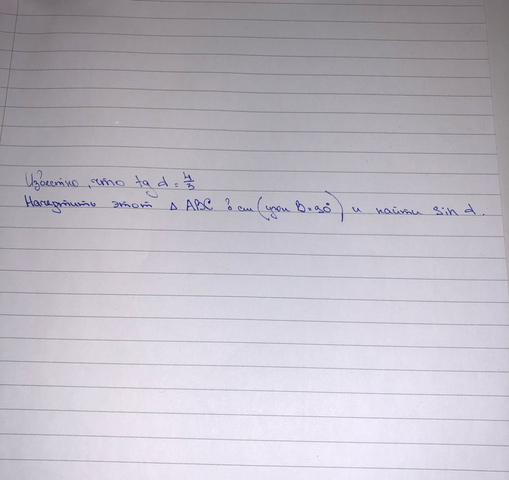 Известно, что tg α = 4/3
Начертить этот △ ABC в см (угол B = 90°) и найти sin α.